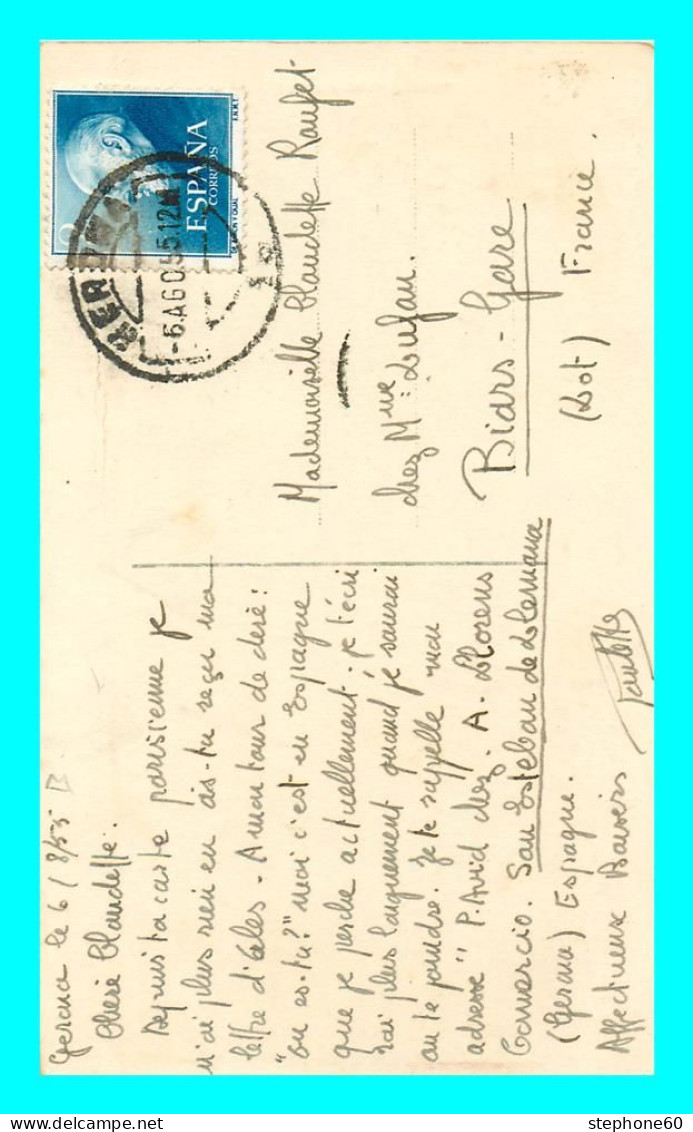 Gerona le 6/8/55
Chère Claudette.
Depuis ta carte parisienne je
n'ai plus rien eu as-tu reçu ma
lettre d'Ales. A mon tour de dire:
"ou es-tu?" moi c'est en Espagne
que je perche actuellement. je t'écri
rai plus longuement quand je saurai
ou te joindre. Je te rappelle mon
adresse " P. chez. A. Llorens
Comercio. San Esteban de Llemana
(Gerona) Espagne.
Affectueux Baisers
Mademoiselle Claudette Roufet
chez Mme Dufau.
Biars-Gare
(Lot) France.
ESPAÑA
CORREOS
F.N.M.T.
-6.AGO.55.12M
stephone60